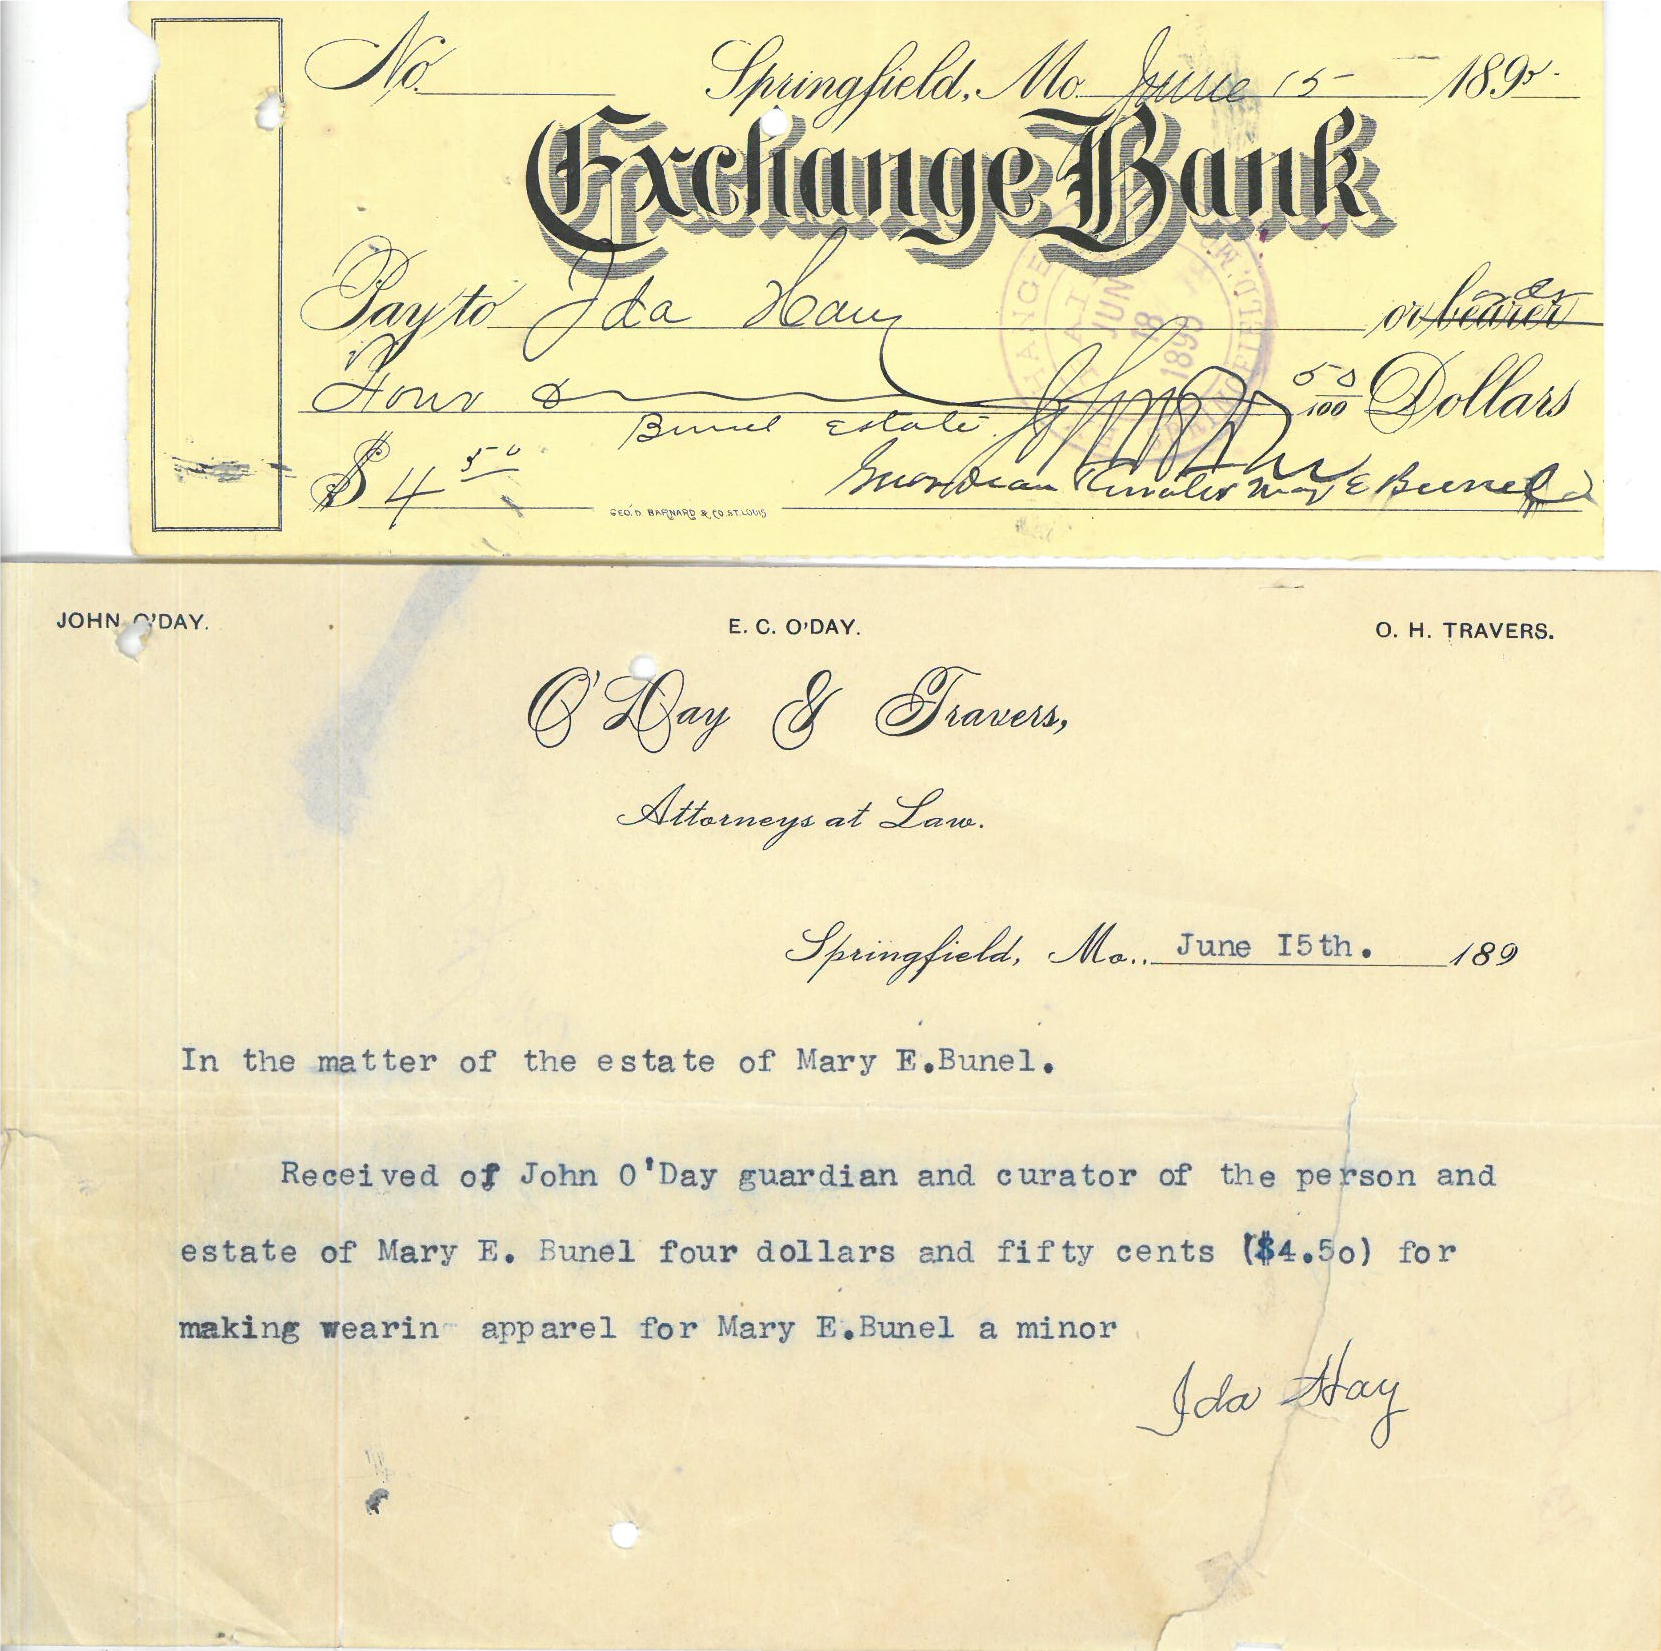 No. Springfield, Mo. June 15 - 189
Exchange Bank
Pay to Ida Hay or bearer
Four 50/100 Dollars
Bunel Estate
$ 4 50
Guardian Curator Mary E Bunel
GEO. D. BARNARD & CO. ST. LOUIS
JUN 18 189
JOHN O'DAY. E. C. O'DAY. O. H. TRAVERS.
O'Day & Travers,
Attorneys at Law.
Springfield, Mo., June I5th. 189
In the matter of the estate of Mary E.Bunel.
Received of John O'Day guardian and curator of the person and
estate of Mary E. Bunel four dollars and fifty cents ($4.5o) for
making wearin apparel for Mary E.Bunel a minor
Ida Hay